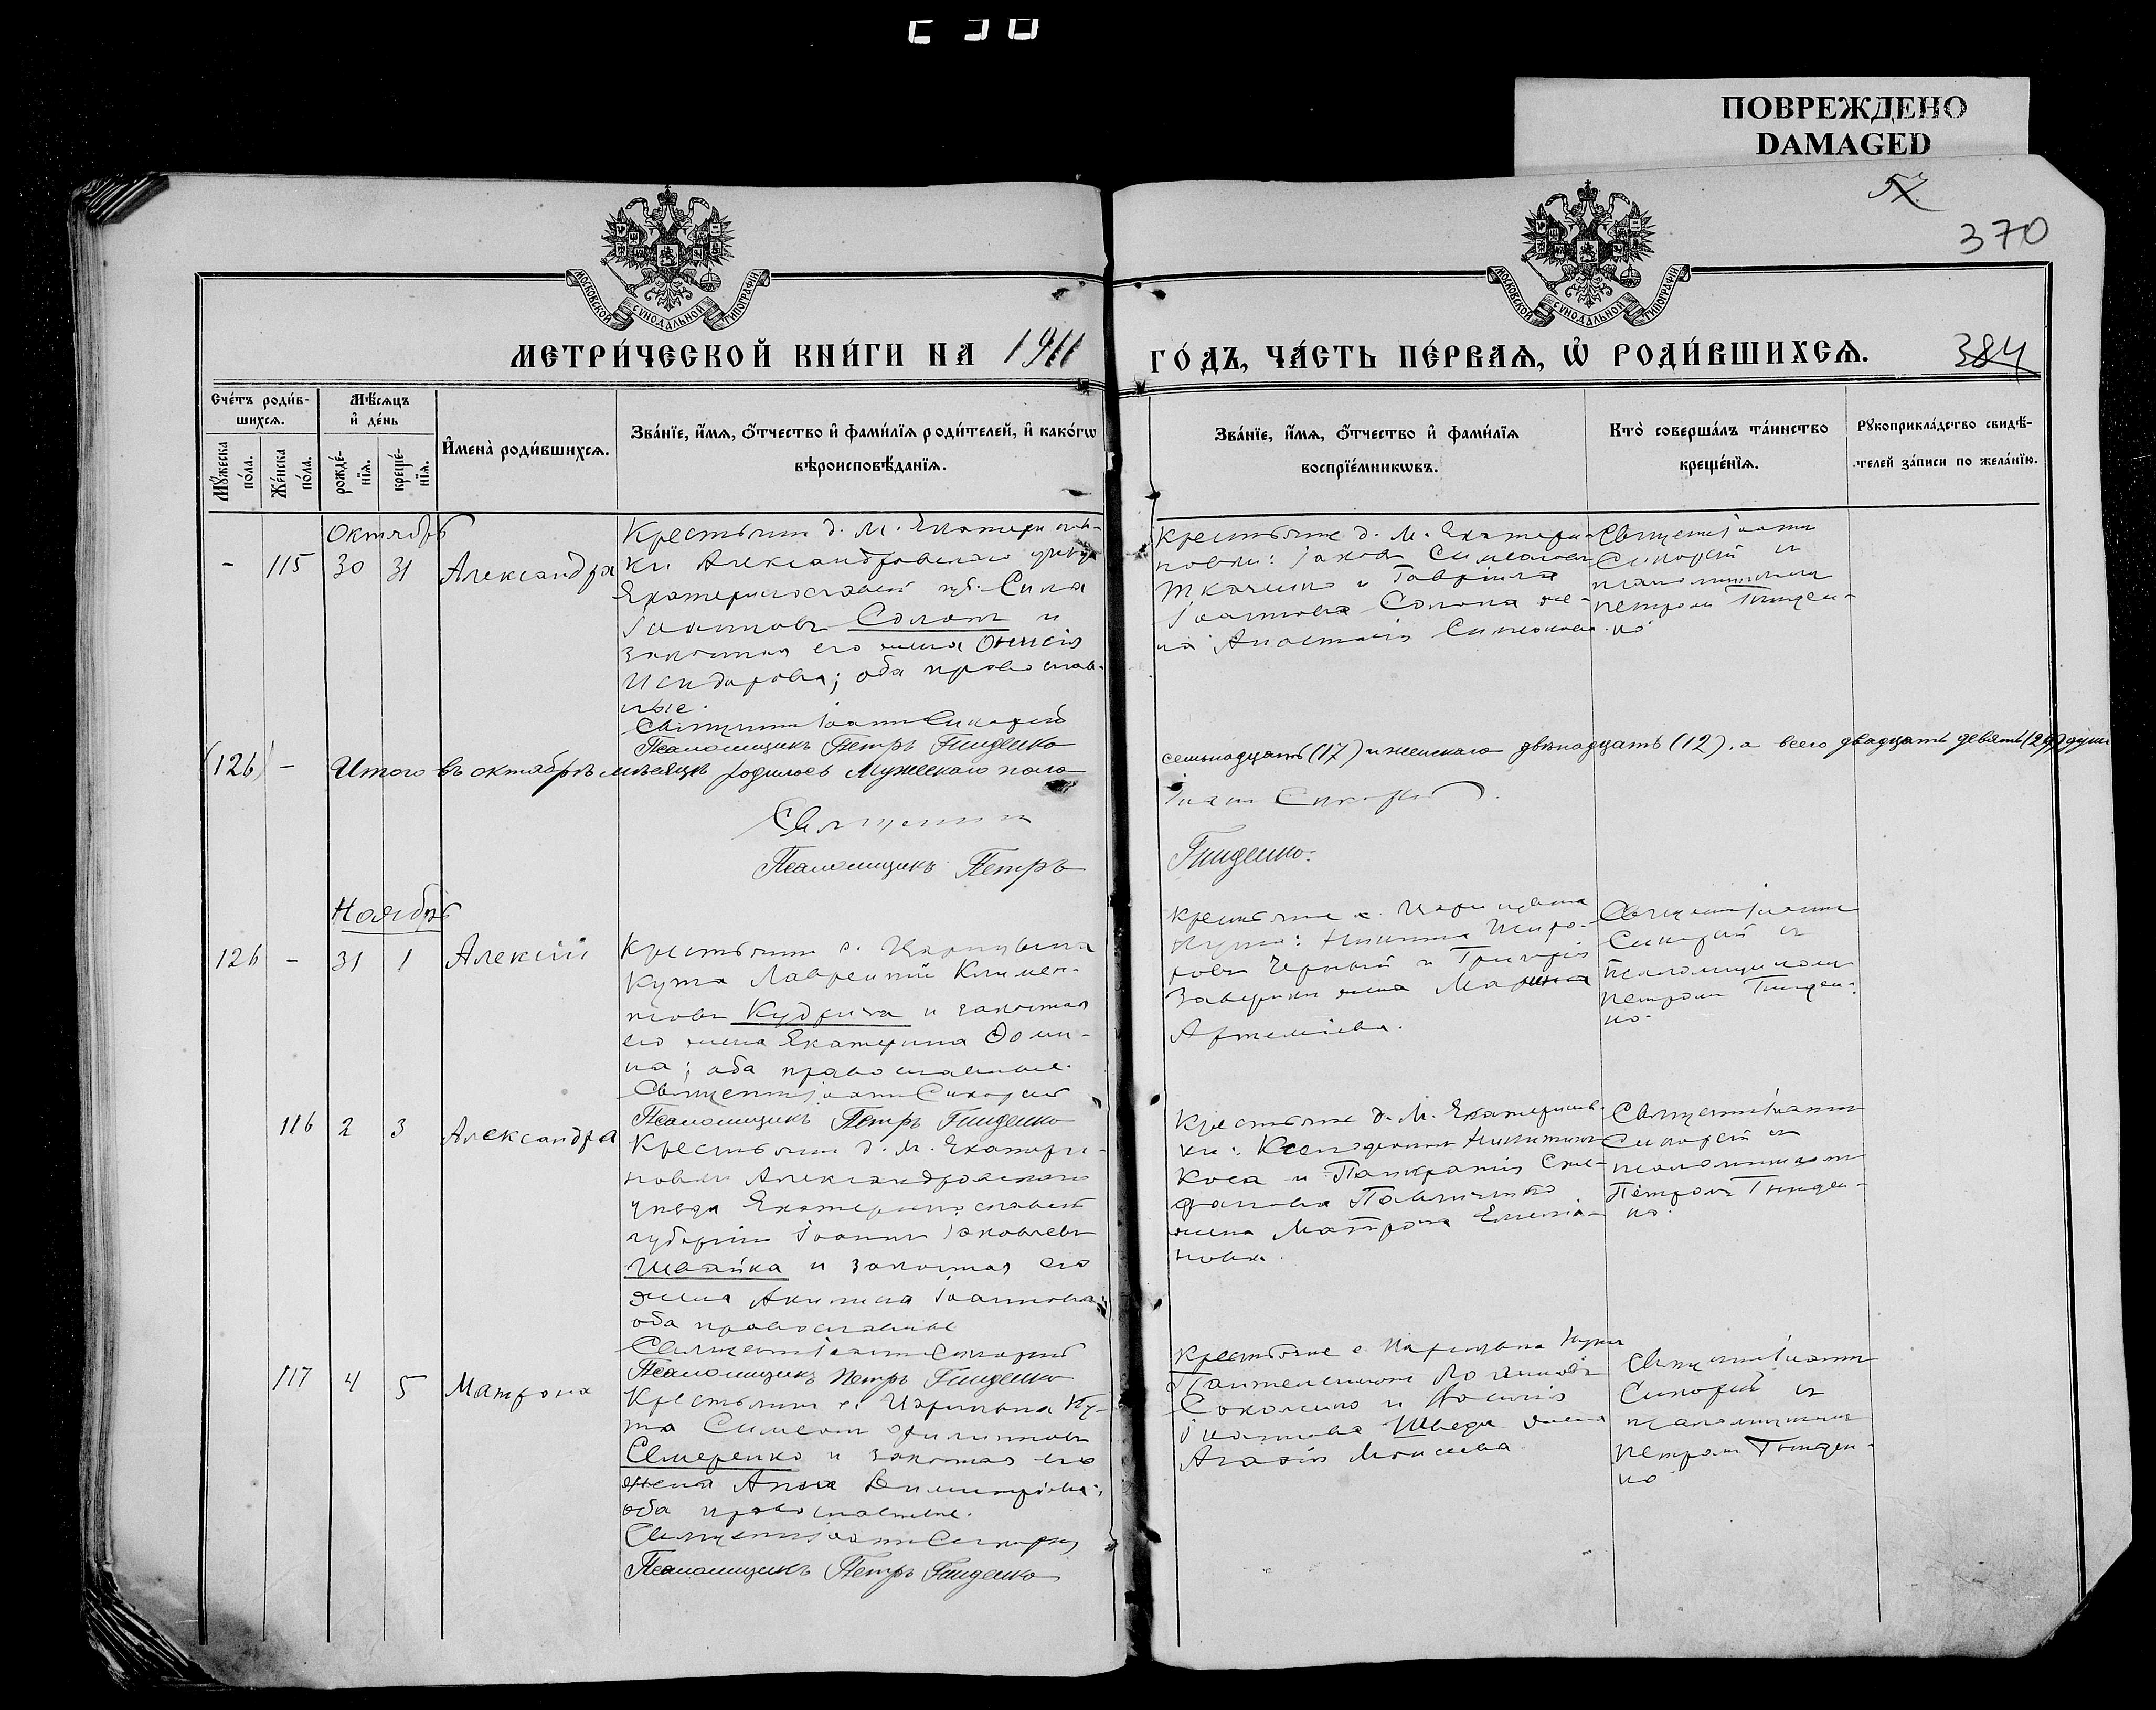 ПОВРЕЖДЕНО
DAMAGED
57
370
МОСКОВСКОЙ СѴНОДАЛЬНОЙ ТИПОГРАФІИ
МОСКОВСКОЙ СѴНОДАЛЬНОЙ ТИПОГРАФІИ
МЕТРИ́ЧЕСКОЙ КНИ́ГИ НА 1911
ГО́ДЪ, ЧА́СТЬ ПЕ́РВАѦ, Ѡ҆ РОДИ́ВШИХСѦ.
384
Сче́тъ роди́в-
шихсѧ.
Мѣ́сѧцъ
и҆ де́нь
Мꙋ́жеска по́ла.
Же́нска по́ла.
рожде́-нїѧ.
креще́-нїѧ.
И҆мена̀ роди́вшихсѧ.
Зва́нїе, и҆́мѧ, ѻ҆́тчество и҆ фами́лїѧ роди́телей, и҆ како́гѡ
вѣроисповѣ́данїѧ.
Зва́нїе, и҆́мѧ, ѻ҆́тчество и҆ фами́лїѧ
воспрїе́мникѡвъ.
Кто̀ соверша́лъ та́инство
креще́нїѧ.
Рꙋкоприкла́дство свидѣ́-
телей за́писи по жела́нїю.
Октябрь
- 115 30 31 Александра
Крестьянин д. М. Екатеринов-
ки Александровскаго уезда
Екатеринославской губ. Сила
Іоаннов Солот и
законная его жена Онисія
Исидорова; оба православ-
ные.
Священник Іоанн Сикорский
Псаломщикъ Петръ Гниденко
Крестьяне д. М. Екатери-
новки: Іаков Симеонов
Ткаченко и Гавріила
Іоаннова же-
на Анастасія
Священник Іоанн
Сикорский и
псаломщиком
Петром Гниден-
ко
(126) - Итого въ октябрѣ мѣсяцѣ родилось Мужескаго пола
семьнадцать (17) и женскаго двѣнадцать (12), а всего двадцать девять (29) душъ
Священник
Іоанн Сикорский.
Псаломщикъ Петръ
Гниденко.
Ноябрь
126 - 31 1 Алексій
Крестьянин с. Царицына
Кута Лаврентій Климен-
тов Кудрича и законная
его жена Екатерина Фоми-
на; оба православные.
Священник Іоанн Сикорский
Псаломщикъ Петръ Гниденко
Крестьяне с. Царицына
Кута: Никита
Черный и Григорія
жена Марина
Артеміева.
Священник Іоанн
Сикорский и
псаломщиком
Петром Гниден-
ко.
116 2 3 Александра
Крестьянин д. М. Екатери-
новки Александровскаго
уезда Екатеринославской
губерніи Іоанн Іаковлев
Швайка и законная его
жена Акилина Іоаннова;
оба православные
Священник Іоанн Сикорский
Псаломщикъ Петръ Гниденко
Крестьяне д. М. Екатеринов-
ки: Ксенофонт Никитин
Коса и Панкратія Сте-
фанова
жена Матрона Емелиа-
нова.
Священник Іоанн
Сикорский и
псаломщиком
Петром Гниден-
ко.
117 4 5 Матрона
Крестьянин с. Царицына Ку-
та Симеон Филиппов
Семеренко и законная его
жена Анна Димитріева;
оба православные.
Священник Іоанн Сикорский
Псаломщикъ Петръ Гниденко
Крестьяне с. Царицына Кута
Пантелеимон Логинов
Соколенко и Василія
Іоаннова Шведа жена
Агафія Моисеева
Священник Іоанн
Сикорский и
псаломщиком
Петром Гниден-
ко